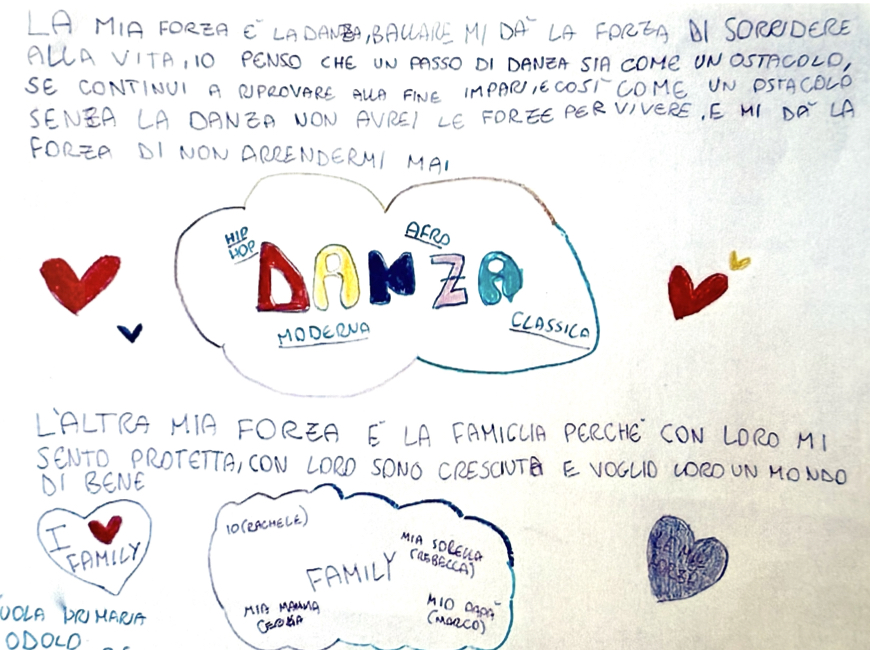 LA MIA FORZA È LA DANZA, BALLARE MI DÀ LA FORZA DI SORRIDERE
ALLA VITA, IO PENSO CHE UN PASSO DI DANZA SIA COME UN OSTACOLO,
SE CONTINUI A RIPROVARE ALLA FINE IMPARI, E COSÌ COME UN OSTACOLO
SENZA LA DANZA NON AVREI LE FORZE PER VIVERE, E MI DÀ LA
FORZA DI NON ARRENDERMI MAI
HIP
HOP
AFRO
DANZA
MODERNA
CLASSICA
L'ALTRA MIA FORZA È LA FAMIGLIA PERCHÈ CON LORO MI
SENTO PROTETTA, CON LORO SONO CRESCIUTA E VOGLIO LORO UN MONDO
DI BENE
I
FAMILY
IO (RACHELE)
MIA SORELLA
(REBECCA)
FAMILY
MIA MAMMA
MIO PAPÀ
(MARCO)
LA MIA
FORZA
UOLA PRIMARIA
ODOLO